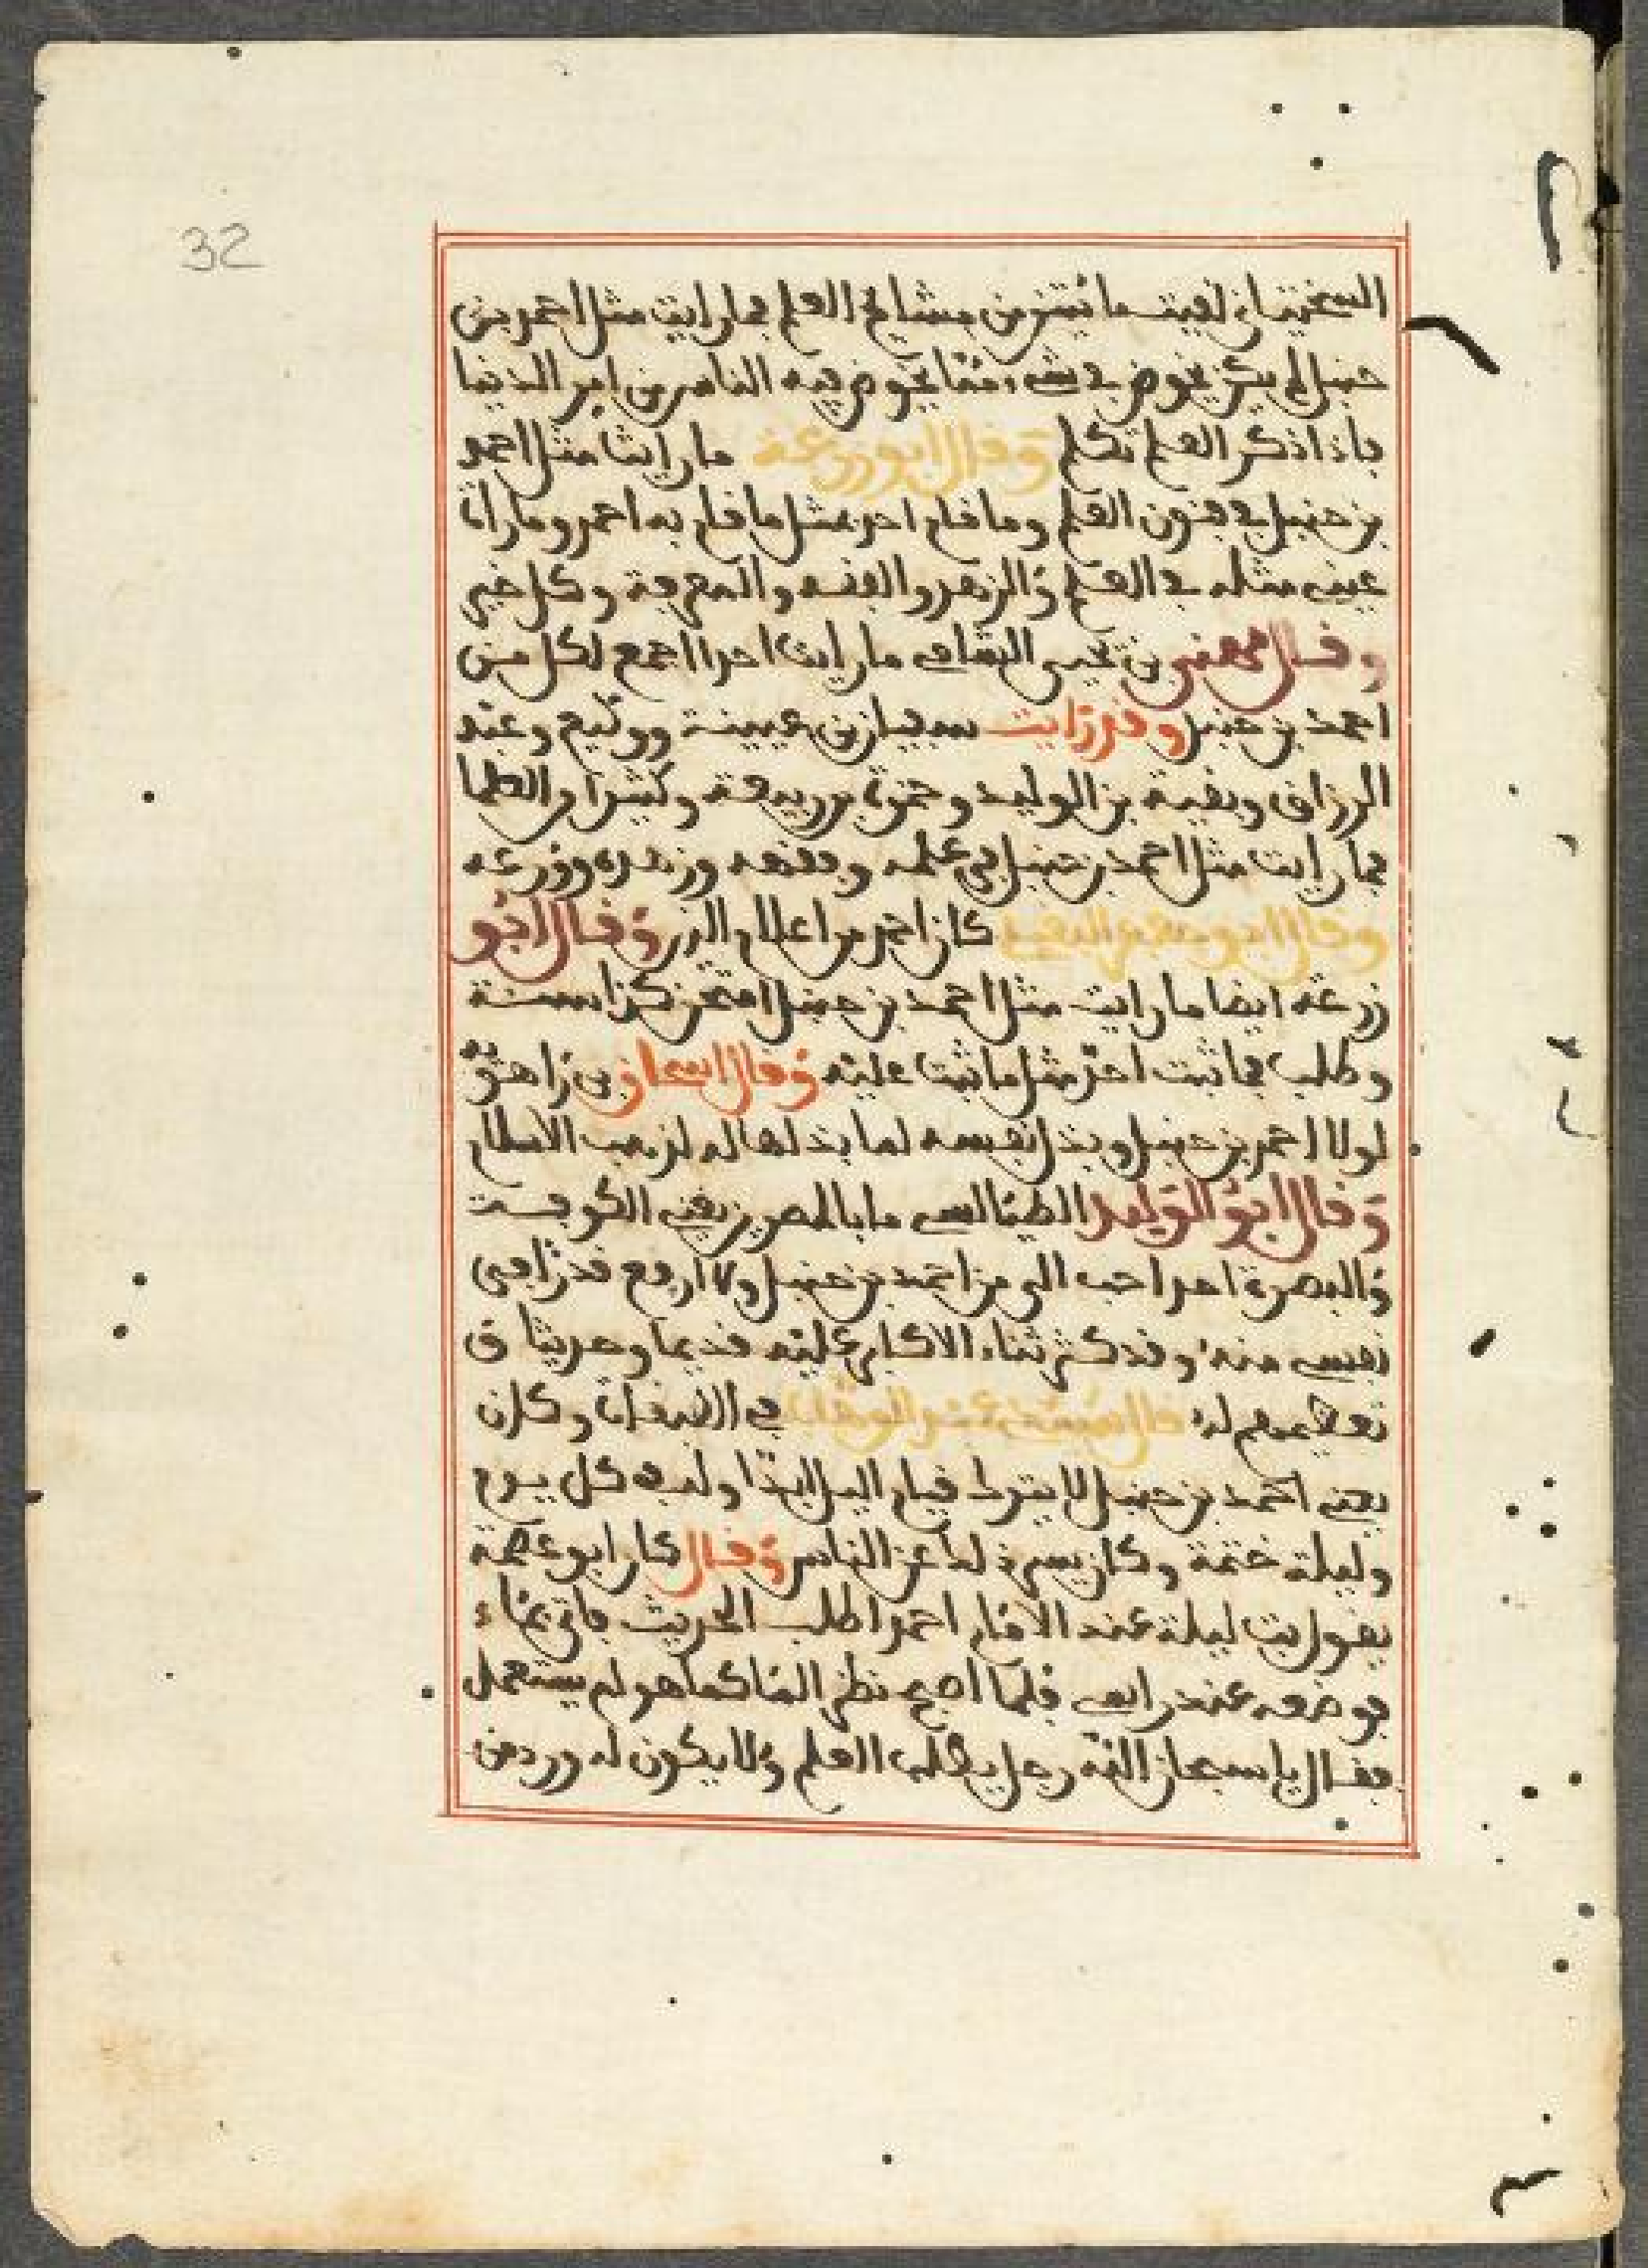 32
السختياني لقيت مائتين من مشايخ العلم فما رايت مثل احمد بن
حنبل لم يكن يخوض في شيء مما يخوض فيه الناس من امر الدنيا
فاذا ذكر العلم تكلم وقال ابو زرعة ما رايت مثل احمد
بن حنبل في فنون العلم وما قام احد مثل ما قام به احمد وما رات
عيني مثله في العلم والزهد والفقه والمعرفة وكل خير
وقال محمد بن يحيى ما رايت احدا اجمع لكل من
احمد بن حنبل وقد رايت سفيان بن عيينة ووكيع وعبد
الرزاق وبقية بن الوليد وضمرة بن ربيعة وكثيرا من العلما
فما رايت مثل احمد بن حنبل في علمه وفقهه وزهده وورعه
وقال ابو جعفر كان احمد من اعلام الدين وقال ابو
زرعة ايضا ما رايت مثل احمد بن حنبل امتحن كذا سنة
وطلب فما ثبت احد مثل ما ثبت عليه وقال اسحاق بن راهويه
لولا احمد بن حنبل وبذل نفسه لما بذلها له لذهب الاسلام
وقال ابو الوليد الطيالسي ما بالمصرين يعني الكوفة
والبصرة احد احب الي من احمد بن حنبل ولا ارفع قدرا في
نفسي منه وقد كثر ثناء الاكابر عليه قديما وحديثا و
تعظيمهم له قال عبد الوهاب في الطبقات وكان
يعني احمد بن حنبل لا يترك قيام اليل ابدا وله في كل يوم
وليلة ختمة وكان يسر ذلك عن الناس وقال كان ابو عصمة
يقول بت ليلة عند الامام احمد اطلب الحديث فاتى بماء
فوضعه عند راسي فلما اصبح نظر الماء كما هو لم يستعمل
فقال يا سبحان الله رجل يطلب العلم ولا يكون له ورد من